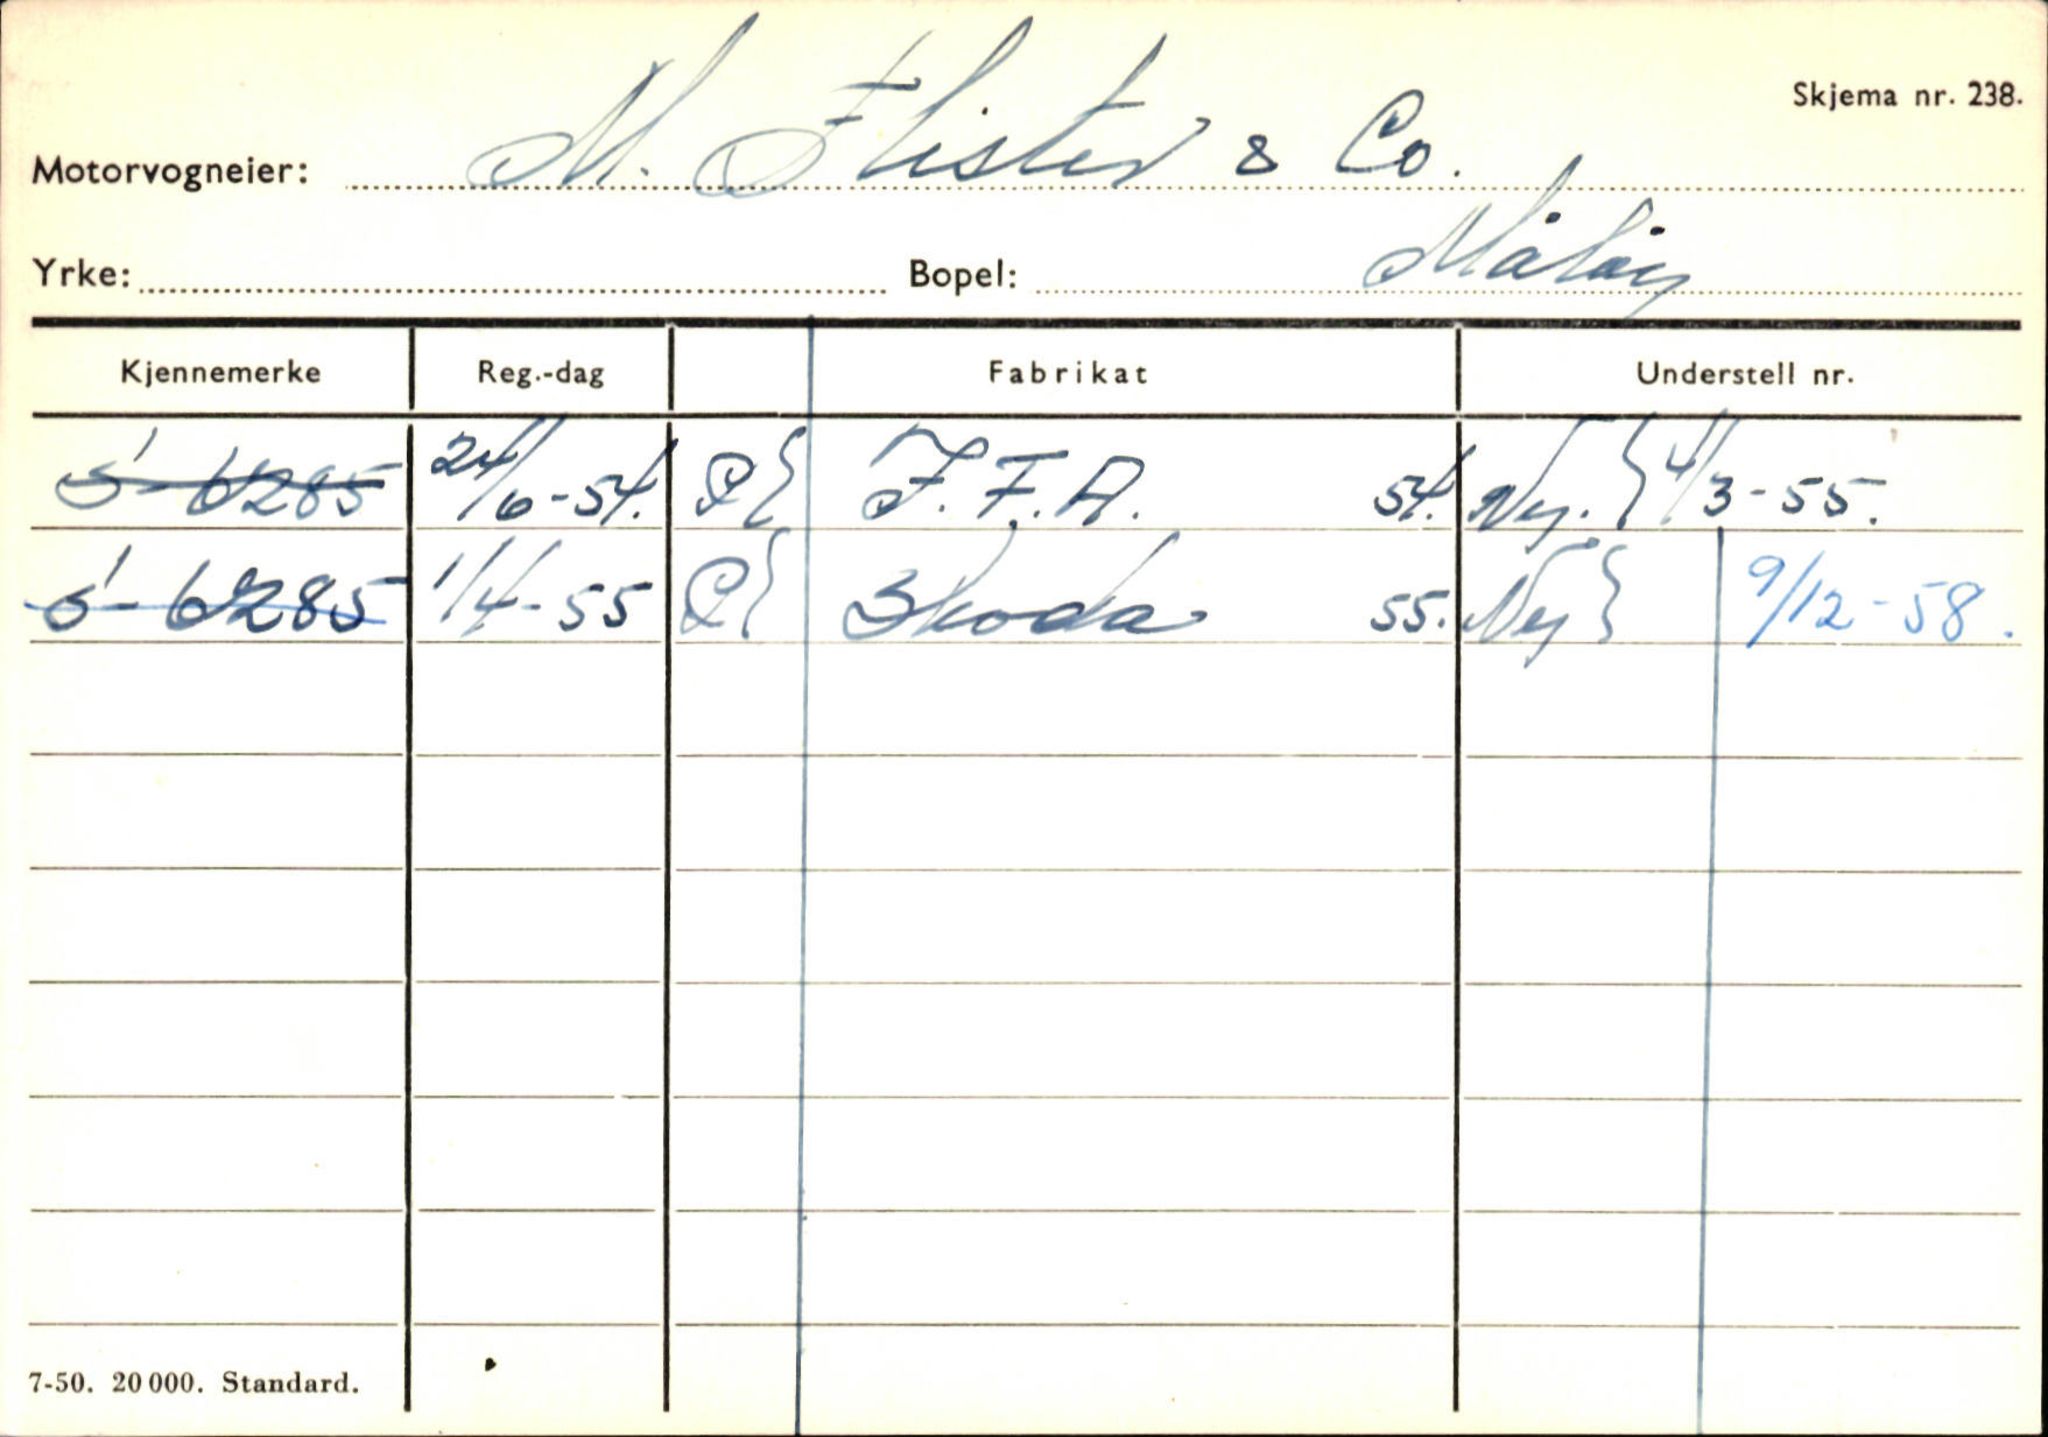 Skjema nr. 238.
Motorvogneier: M. Flister & Co.
Yrke: Bopel: Måløy
Kjennemerke Reg.-dag Fabrikat Understell nr.
S-6285 24/6-54. P{ I.F.A. 54. Ny. } 4/3-55.
S-6285 1/4-55 P{ Skoda 55. Ny } 9/12-58.
7-50. 20 000. Standard.